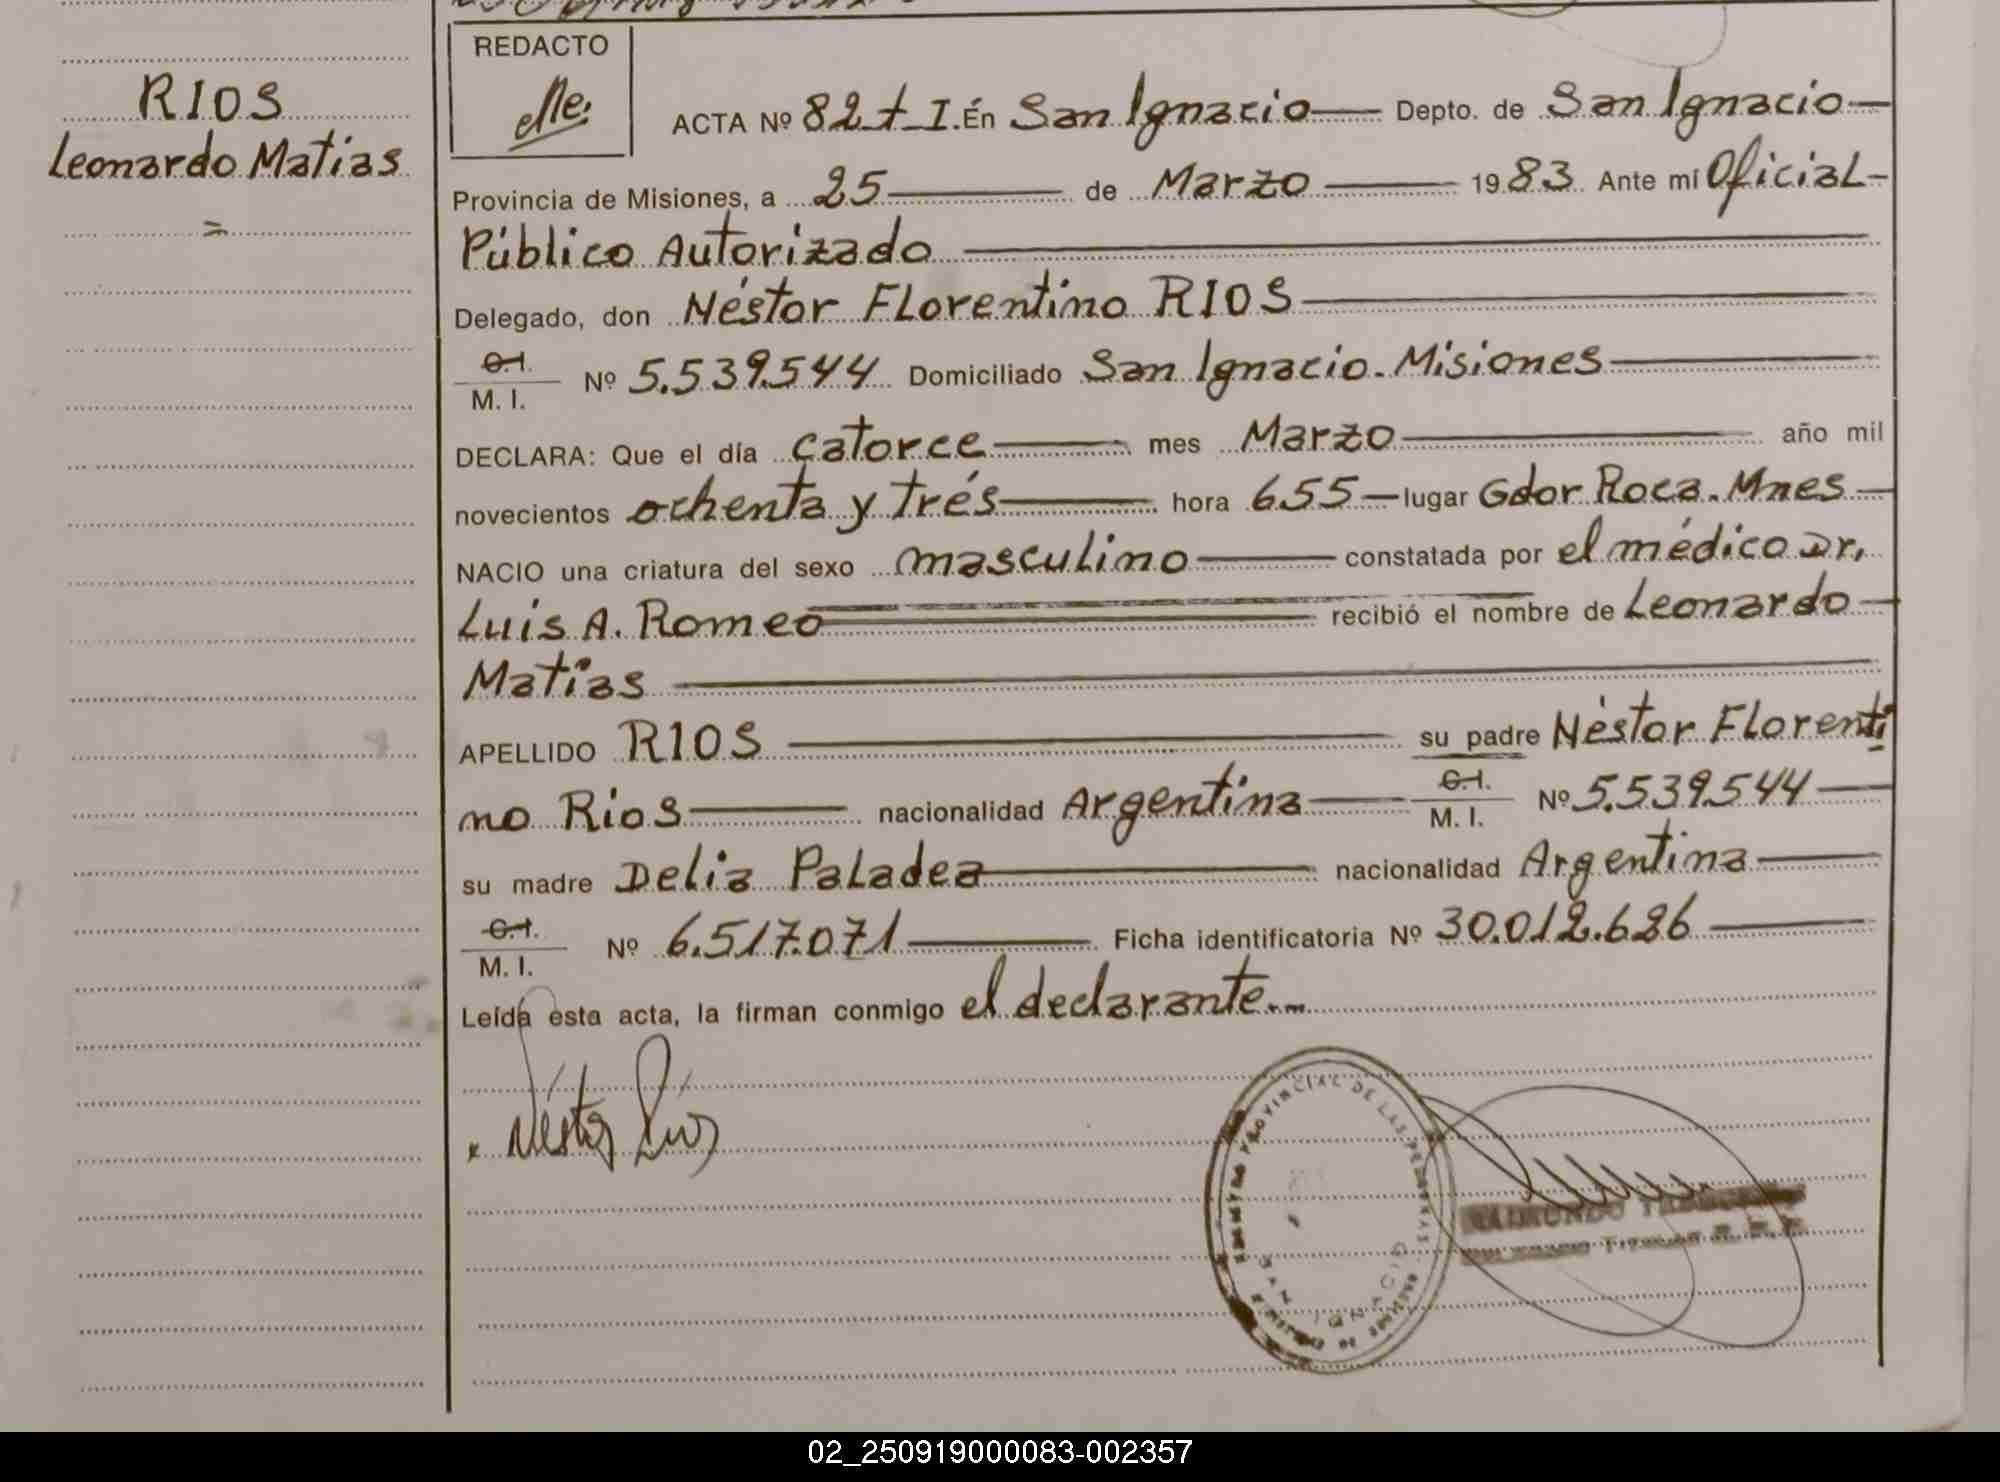 RIOS
Leonardo Matias
=
REDACTO
ACTA Nº 82 t I. En San Ignacio Depto. de San Ignacio
Provincia de Misiones, a 25 de Marzo 1983 Ante mí Oficial
Público Autorizado
Delegado, don Néstor Florentino RIOS
C.I.
M. I. Nº 5.539.544 Domiciliado San Ignacio. Misiones
DECLARA: Que el día catorce mes Marzo año mil
novecientos ochenta y trés hora 655 lugar Gdor Roca. Mnes
NACIO una criatura del sexo masculino constatada por el médico Dr,
Luis A. Romeo recibió el nombre de Leonardo
Matías
APELLIDO RIOS su padre Néstor Florenti
no Rios nacionalidad Argentina C.I. M. I. Nº 5.539.544
su madre Delia Paladea nacionalidad Argentina
C.I.
M. I. Nº 6.517.071 Ficha identificatoria Nº 30.012.626
Leída esta acta, la firman conmigo el declarante...
Néstor Ríos
PROVINCIAL DE LAS PERSONAS
SAN IGNACIO
RAIMUNDO
02_250919000083-002357